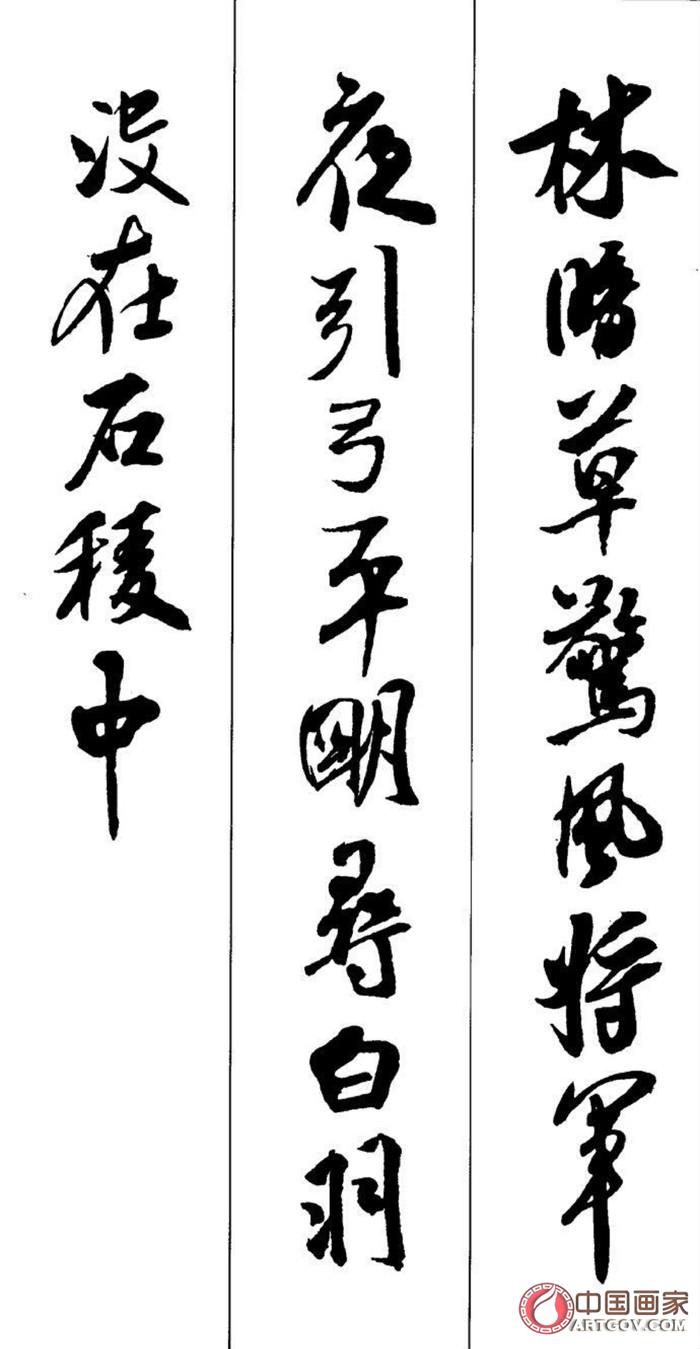 林暗草驚風將軍
夜引弓平明尋白羽
没在石稜中
中国画家
ARTGOV.COM